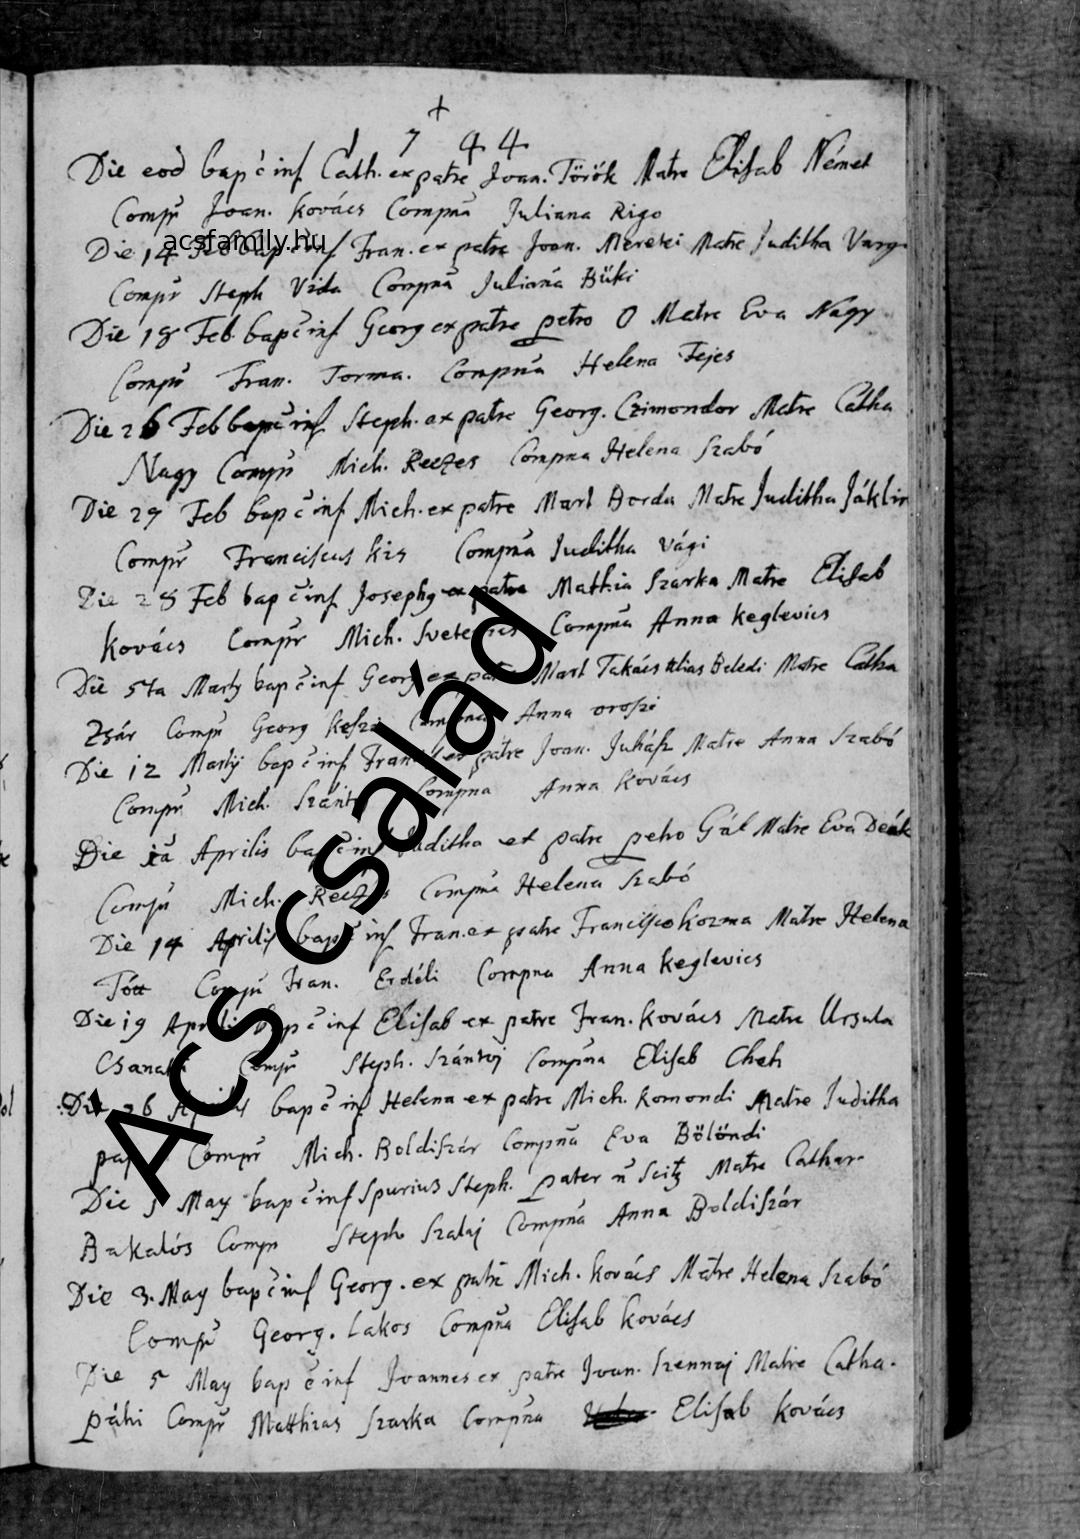 1744
Die eod bap ē inf Cath. ex patre Joan. Török Matre Elisab Német
Compr Joan. Kovács Compna Juliana Rigo
acsfamily.hu
Die 14 Feb bap ē inf Fran. ex patre Joan. Meretei Matre Juditha Varga
Compr Steph Vida Compna Juliana Büki
Die 18 Feb. bap ē inf Georg ex patre petro O Matre Eva Nagy
Compr Fran. Torma. Compna Helena Fejes
Die 26 Feb bap ē inf Steph. ex patre Georg. Czimondor Matre Catha
Nagy Compr Mich. Reczes Compna Helena Szabó
Die 27 Feb bap ē inf Mich. ex patre Mart Borda Matre Juditha Jáklin
Compr Franciscus kis Compna Juditha Vági
Die 28 Feb bap ē inf Josephg ex patre Mathia Szarka Matre Elisab
Kovács Compr Mich. Compna Anna Keglevics
Die 5ta Marty bap ē inf Georg ex patre Mart Takács alias Beledi Matre Catha
Zsár Compr Georg Keszi Compna Anna oroszi
Die 12 Martij bap ē inf ex patre Joan. Juhász Matre Anna Szabó
Compr Mich. Szántó Compna Anna Kovács
Die Aprilis bap ē inf Juditha ex patre petro Gál Matre Eva Deák
Compr Mich. Reczes Compna Helena Szabó
Die 14 Aprilis bap ē inf Fran. ex patre Francisco Kozma Matre Helena
Tótt Compr Fran. Erdéli Compna Anna Keglevics
Die 19 Aprilis bap ē inf Elisab ex patre Fran. Kovács Matre Ursula
Compr Steph. Szántoj Compna Elisab Cheh
Die 26 Aprilis bap ē inf Helena ex patre Mich. Komondi Matre Juditha
Compr Mich. Boldiszár Compna Eva Bölöndi
Die May bap ē inf Spurius Steph. pater n Scitz Matre Cathar
Bakalós Compr Steph Szalaj Compna Anna Boldiszár
Die 3. May bap ē inf Georg. ex patre Mich. Kovács Matre Helena Szabó
Compr Georg. Lakos Compna Elisab Kovács
Die 5 May bap ē inf Joannes ex patre Joan. Szennaj Matre Catha.
páhi Compr Matthias Szarka Compna Elisab Kovács
Ács család